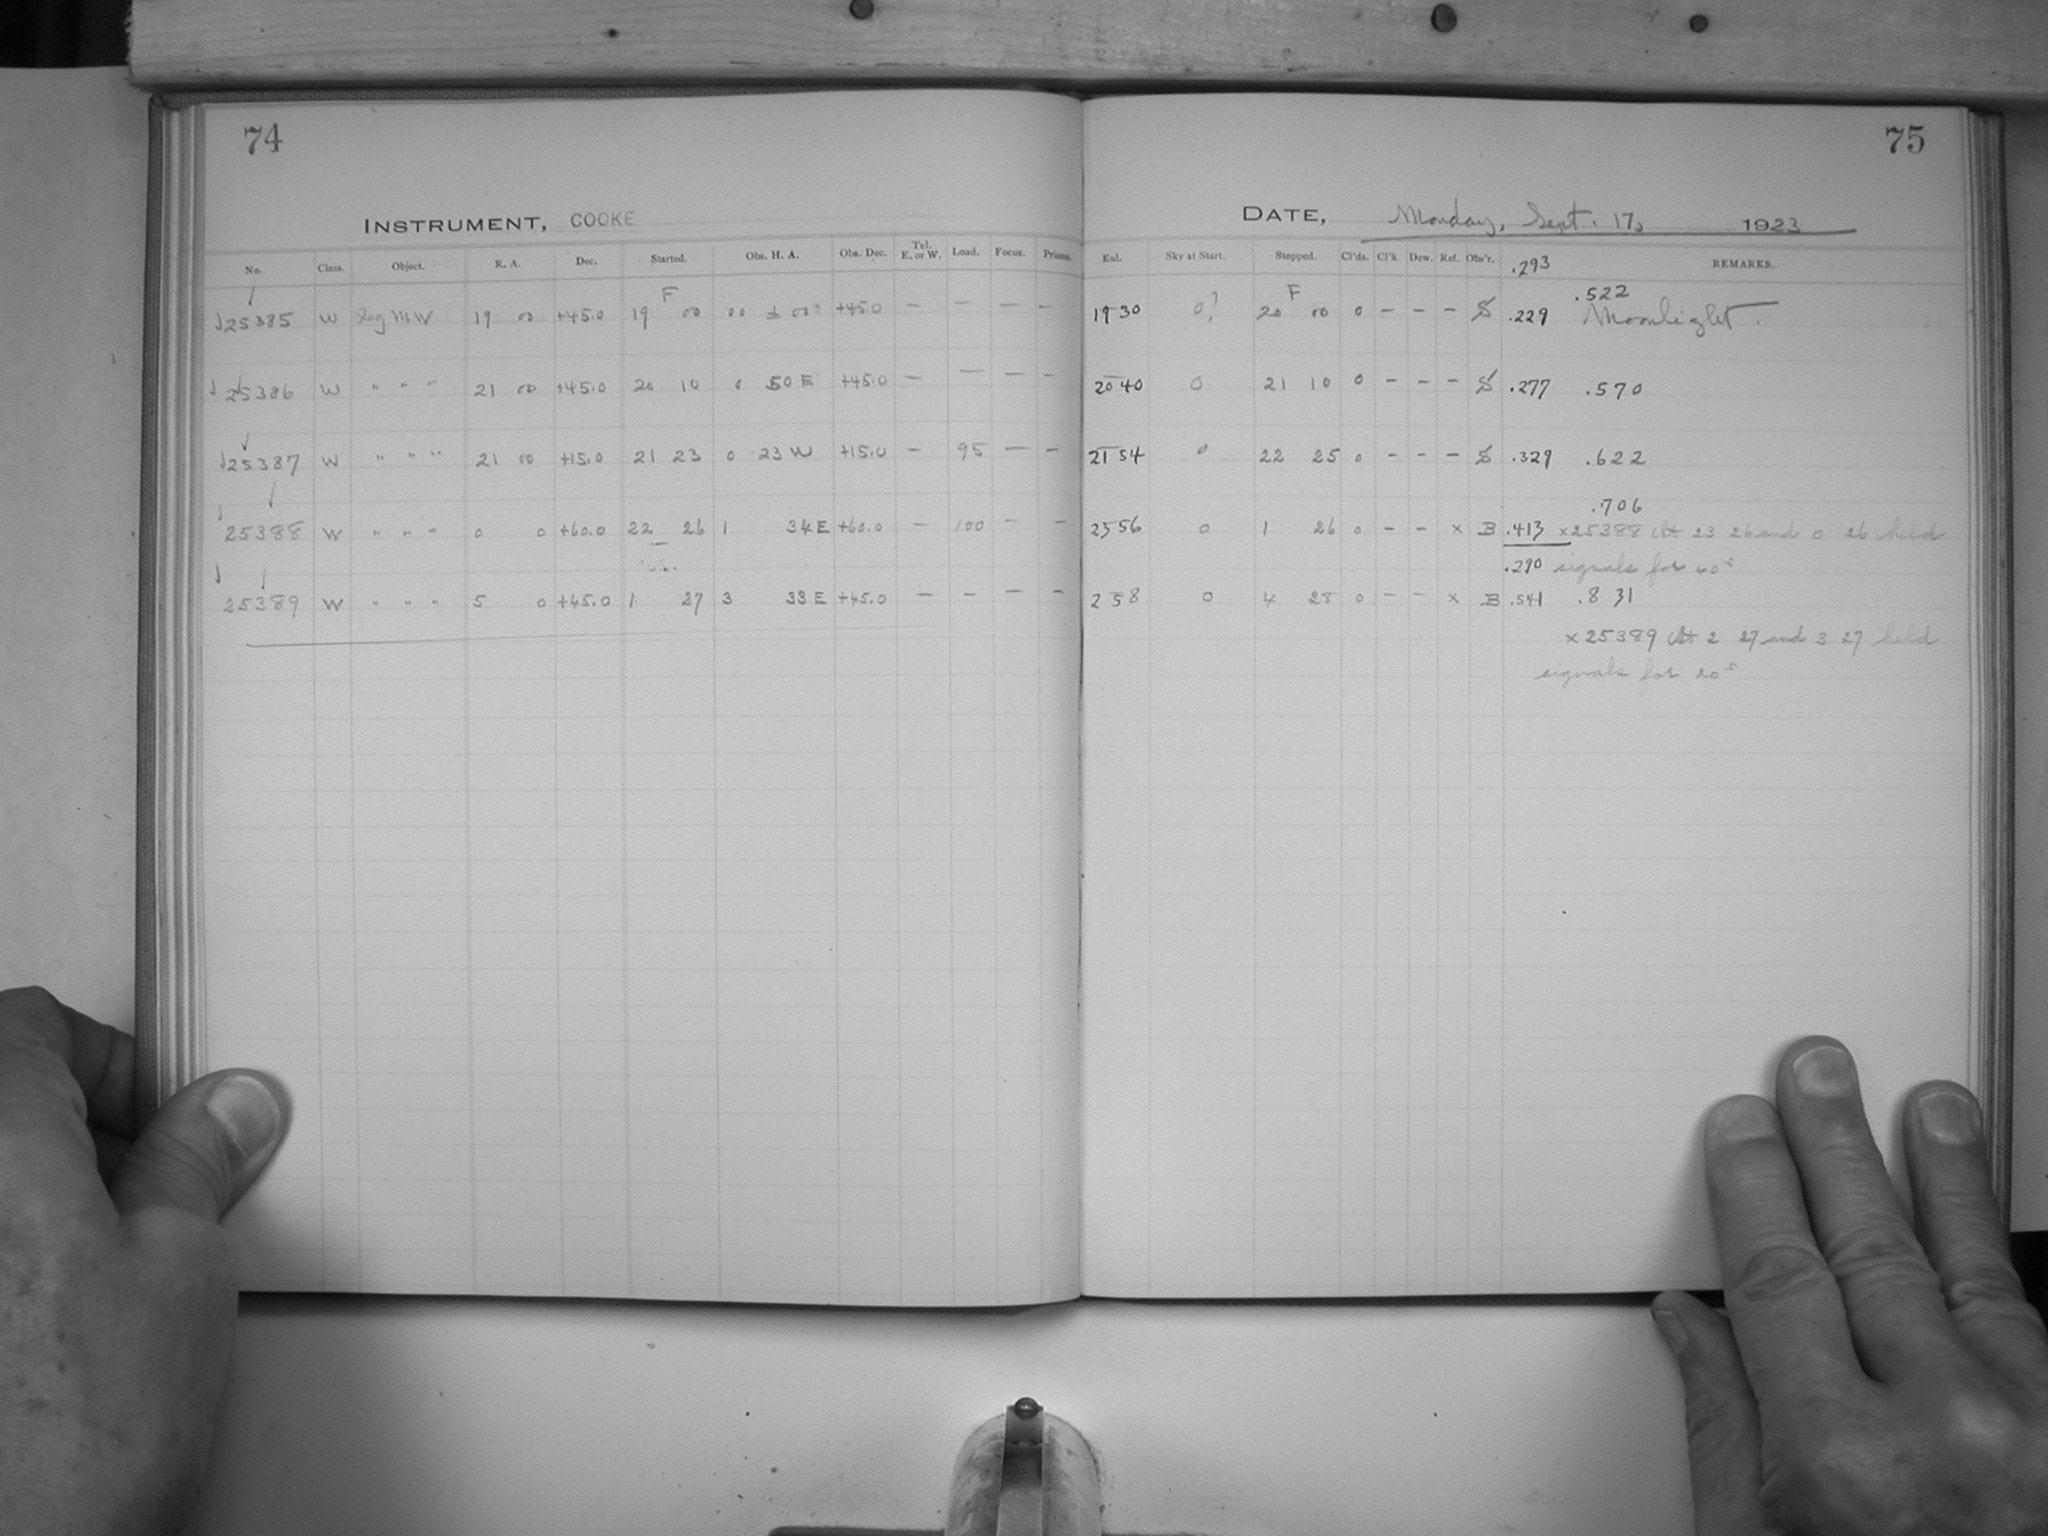 74
INSTRUMENT, COOKE
No. Class. Object. R. A. Dec. Started. Obs. H. A. Obs. Dec. Tel. E. or W. Load. Focus. Prisms.
F
25385 W Reg MW 19 00 +45.0 19 00 00 ± 00 +45.0 — — — —
25386 W " " " 21 00 +45.0 20 10 0 50 E +45.0 — — — —
25387 W " " " 21 00 +15.0 21 23 0 23 W +15.0 — 95 — —
25388 W " " " 0 0 +60.0 22 26 1 34 E +60.0 — 100 — —
25389 W " " " 5 0 +45.0 1 27 3 33 E +45.0 — — — —
75
DATE, Monday, Sept. 17, 1923
Eal. Sky at Start. Stopped. Cl'ds. Cl'k. Dew. Ref. Obs'r. .293 REMARKS.
F .522
19 30 0? 20 00 0 — — — S .229 Moonlight.
20 40 0 21 10 0 — — — S .277 .570
21 54 0 22 25 0 — — — S .329 .622
.706
23 56 0 1 26 0 — — x B .413 x25388 At 23 26 and 0 26 held
.290 signals for 40s
2 58 0 4 28 0 — — x B .541 .831
x25389 At 2 27 and 3 27 held
signals for 20s